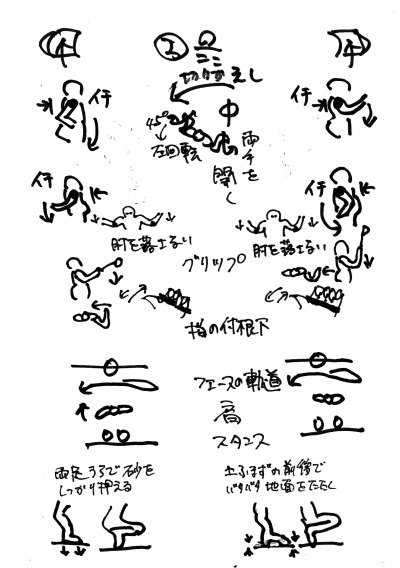 切りかえし
中
45°
左回転
両手を開く
イチ
イチ
イチ
イチ
肘を落とさない
肘を落とさない
グリップ
指の付根下
フェースの軌道
肩
スタンス
両足うらで砂を
しっかり押える
土ふまずの前後で
バタバタ地面をたたく